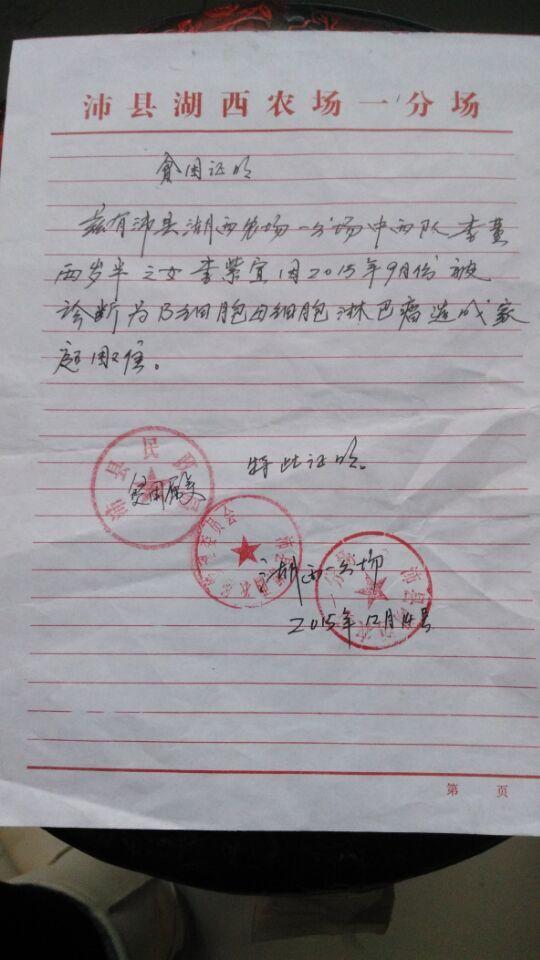 沛县湖西农场一分场
贫困证明
兹有沛县湖西农场一分场中西队李董
两岁半之女李紫宜因2015年9月份被
诊断为B细胞母细胞淋巴瘤造成家
庭困难。
特此证明。
沛县民政局
情况属实
湖西一分场
2015年12月14号
第 页